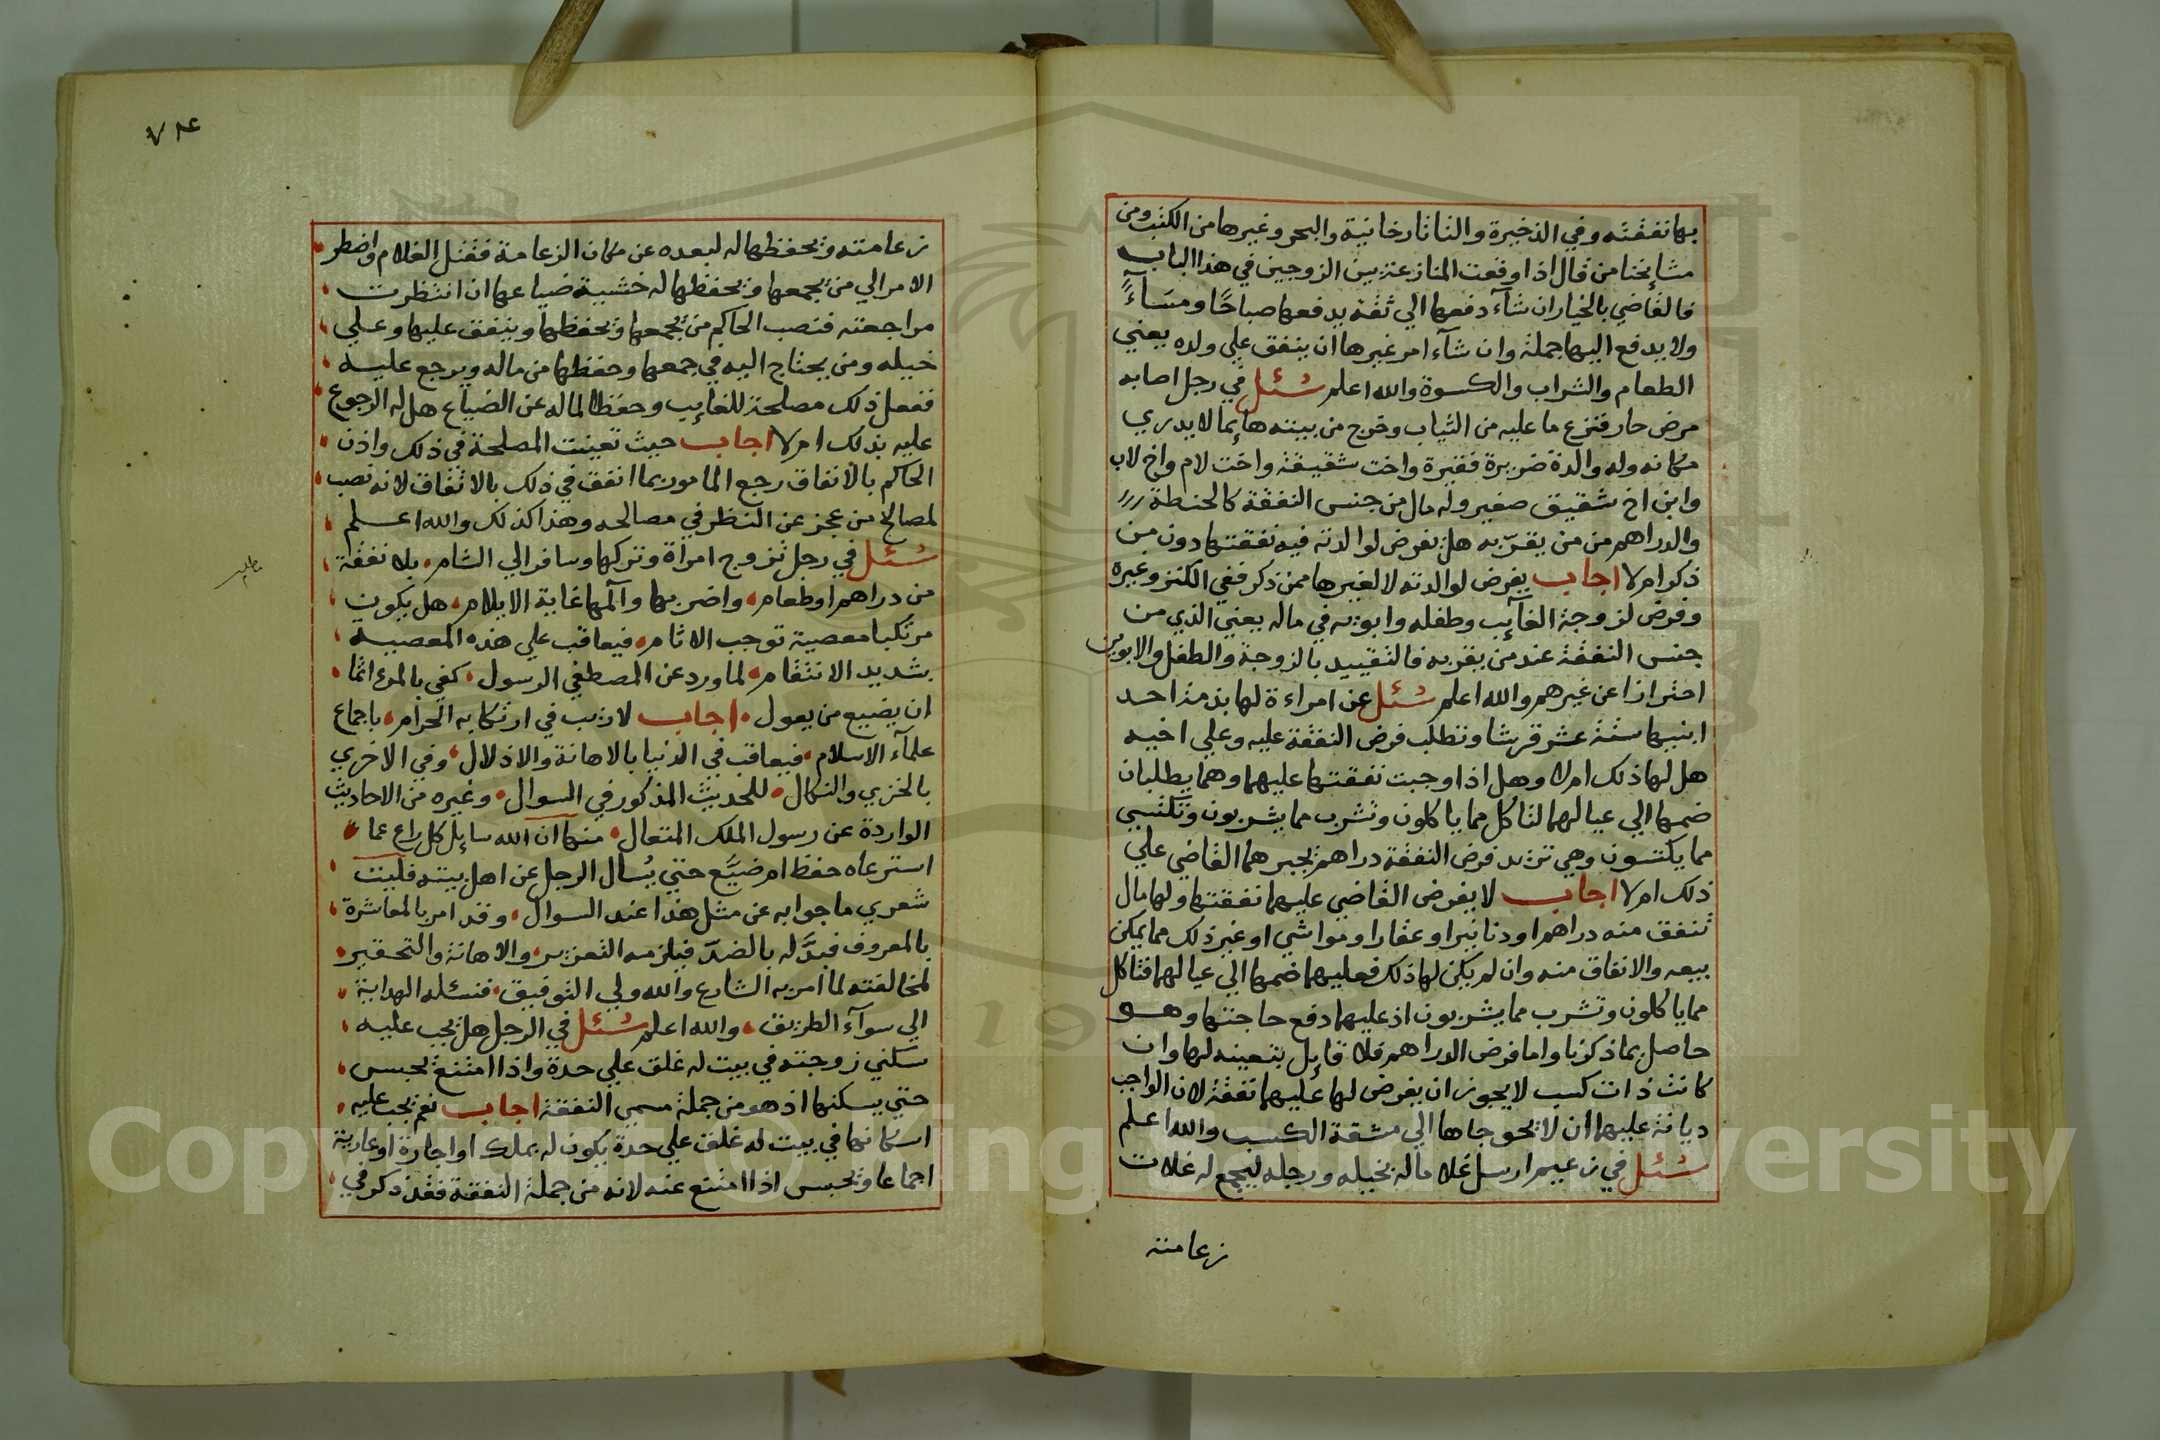 بها نفقته وفي الذخيرة والتاتارخانية والبحر وغيرها من الكتب ومن
مشايخنا من قال اذا وقعت المنازعة بين الزوجين في هذا الباب
فالقاضي بالخيار ان شآء دفعها الي ثقة يدفعها صباحًا ومسَآءً
ولا يدفع اليها جملة وان شآء امر غيرها ان ينفق علي ولده يعني
الطعام والشراب والكسوة والله اعلم سُئل في رجل اصابه
مرض حار فنزع ما عليه من الثياب وخرج من بيته هايما لا يدري
مكانه وله والدة ضريرة فقيرة واخت شقيقة واخت لام واخ لاب
وابن اخ شقيق صغير وله مال من جنس النفقة كالحنطة
والدراهم من من يقرّ به هل يفرض لوالدته فيه نفقتها دون من
ذكر ام لا اجاب يفرض لوالدته لا لغيرها ممن ذكر ففي الكنز وغيره
وفرض لزوجة الغآيب وطفله وابويه في ماله يعني الذي من
جنس النفقة عند من يقر به فالتقييد بالزوجة والطفل والابوين
احترازا عن غيرهم والله اعلم سُئل عن امراءة لها بذمة احد
ابنيها ستة عشر قرشا وتطلب فرض النفقة عليه وعلي اخيه
هل لها ذلك ام لا وهل اذا وجبت نفقتها عليهما وهما يطلبان
ضمها الي عيالهما لتاكل مما ياكلون وتشرب مما يشربون وتكتسي
مما يكتسون وهي تريد فرض النفقة دراهم يجبرهما القاضي علي
ذلك ام لا اجاب لا يفرض القاضي عليهما نفقتها ولها مال
تنفق منه دراهم او دنانير او عقارا او مواشي او غير ذلك مما يمكن
بيعه والانفاق منه وان لم يكن لها ذلك فعليهما ضمها الي عيالهما فتاكل
مما ياكلون وتشرب مما يشربون اذ عليهما دفع حاجتها وهو
حاصل بما ذكرنا واما فرض الدراهم فلا قايل بتعينه لها وان
كانت ذات كسب لا يجوز ان يفرض لها عليهما نفقة لان الواجب
ديانة عليهما ان لا يحوجاها الي مشقة الكسب والله اعلم
سُئل في زعيم ارسل غلاما له بخيله ورجله ليجمع له غلات
زعامته
٧٤
زعامته ويحفظها له لبعده عن مكان الزعامة فقتل الغلام واضطر
الامر الي من يجمعها ويحفظها له خشية ضياعها ان انتظرت
مراجعته فنصب الحاكم من يجمعها ويحفظها وينفق عليها وعلي
خيله ومن يحتاج اليه في جمعها وحفظها من ماله ويرجع عليه
ففعل ذلك مصلحة للغايب وحفظا لماله عن الضياع هل له الرجوع
عليه بذلك ام لا اجاب حيث تعينت المصلحة في ذلك واذن
الحاكم بالانفاق رجع المامور بما انفق في ذلك بالاتفاق لانه نصب
لمصالح من عجز عن النظر في مصالحه وهذا كذلك والله اعلم
سُئل في رجل تزوج امراة وتركها وسافر الي الشام بلا نفقة
من دراهم او طعام واضر بها وآلمها غاية الايلام هل يكون
مرتكبا معصية توجب الاثام فيعاقب علي هذه المعصية
بشديد الانتقام لما ورد عن المصطفي الرسول كفي بالمرء اثما
ان يضيع من يعول اجاب لا ريب في ارتكابه الحرام باجماع
علمآء الاسلام فيعاقب في الدنيا بالاهانة والاذلال وفي الاخري
بالخزي والنكال للحديث المذكور في السوال وغيره من الاحاديث
الواردة عن رسول الملك المتعال منها ان الله سايل كل راع عما
استرعاه حفظ ام ضيّع حتي يُسال الرجل عن اهل بيته فليت
شعري ما جوابه عن مثل هذا عند السوال وقد امر بالمعاشرة
بالمعروف فبدَّله بالضدّ فيلزمه التعزير والاهانة والتحقير
لمخالفته لما امر به الشارع والله ولي التوفيق فنسئله الهداية
الي سوآء الطريق والله اعلم سُئل في الرجل هل يجب عليه
سكني زوجته في بيت له غلق علي حدة واذا امتنع يحبس
حتي يسكنها اذ هو من جملة مسمي النفقة اجاب نعم يجب عليه
اسكانها في بيت له غلق علي حدة يكون له بملك او اجارة او عارية
اجماعا ويحبس اذا امتنع عنه لانه من جملة النفقة فقد ذكر في
مطلب
Copyright © King Saud University